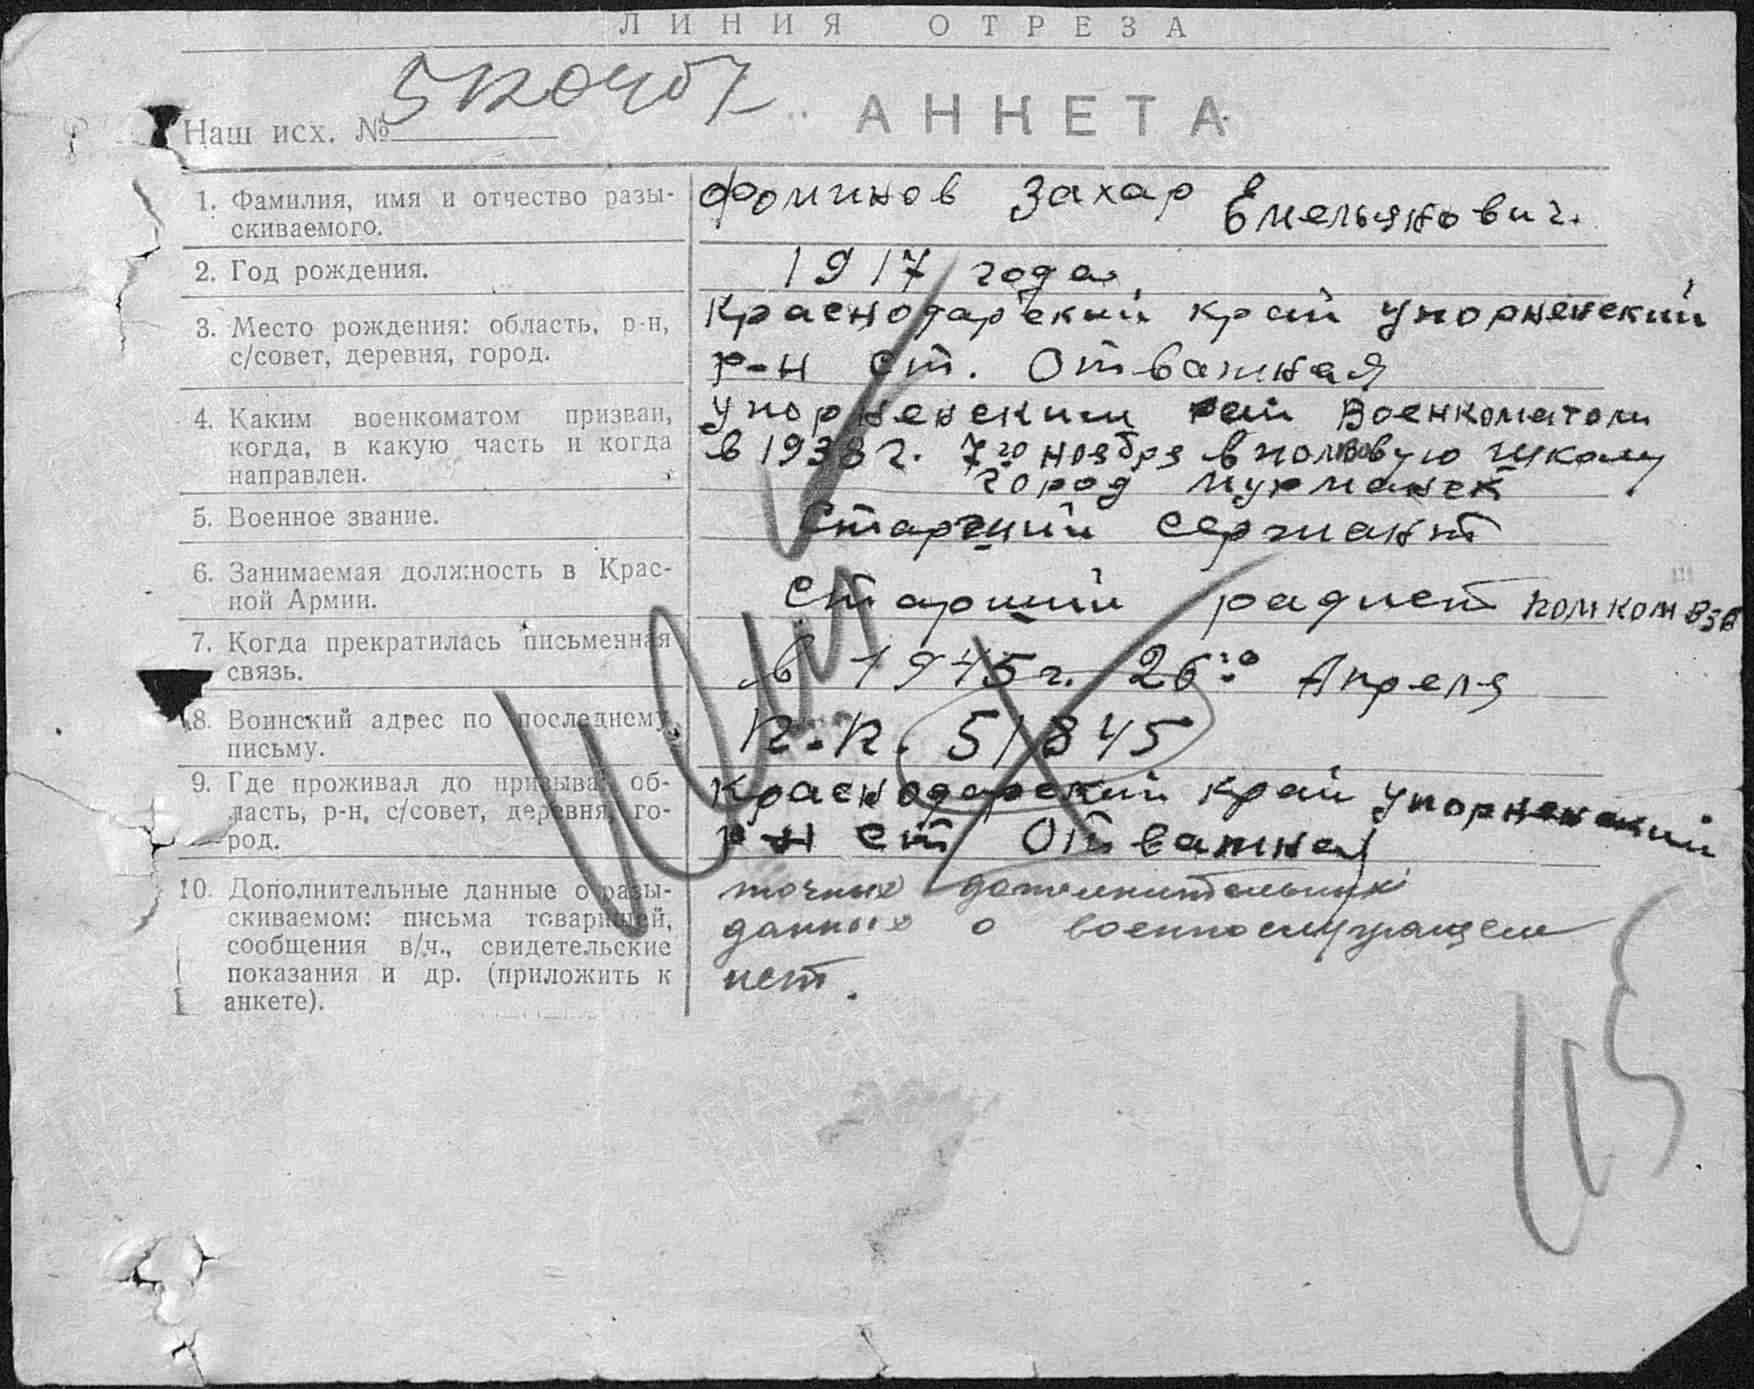 ЛИНИЯ ОТРЕЗА
Наш исх. №
АНКЕТА
1. Фамилия, имя и отчество разы-
скиваемого.
Фоминов Захар Емельянович.
2. Год рождения.
1917 года
3. Место рождения: область, р-н,
с/совет, деревня, город.
Краснодарский край Упорненский
р-н ст. Отважная
4. Каким военкоматом призван,
когда, в какую часть и когда
направлен.
Упорненским рай военкоматом
в 1938 г. 7го ноября в полковую школу
город Мурманск
5. Военное звание.
Старший сержант
6. Занимаемая должность в Крас-
ной Армии.
Старший радист помкомвзв
7. Когда прекратилась письменная
связь.
в 1945 г. 26го Апреля
8. Воинский адрес по последнему
письму.
п.п. 51845
9. Где проживал до призыва: об-
ласть, р-н, с/совет, деревня, го-
род.
Краснодарский край Упорненский
р-н ст Отважная
10. Дополнительные данные о разы-
скиваемом: письма товарищей,
сообщения в/ч., свидетельские
показания и др. (приложить к
анкете).
точных дополнительных
данных о военнослужащем
нет.